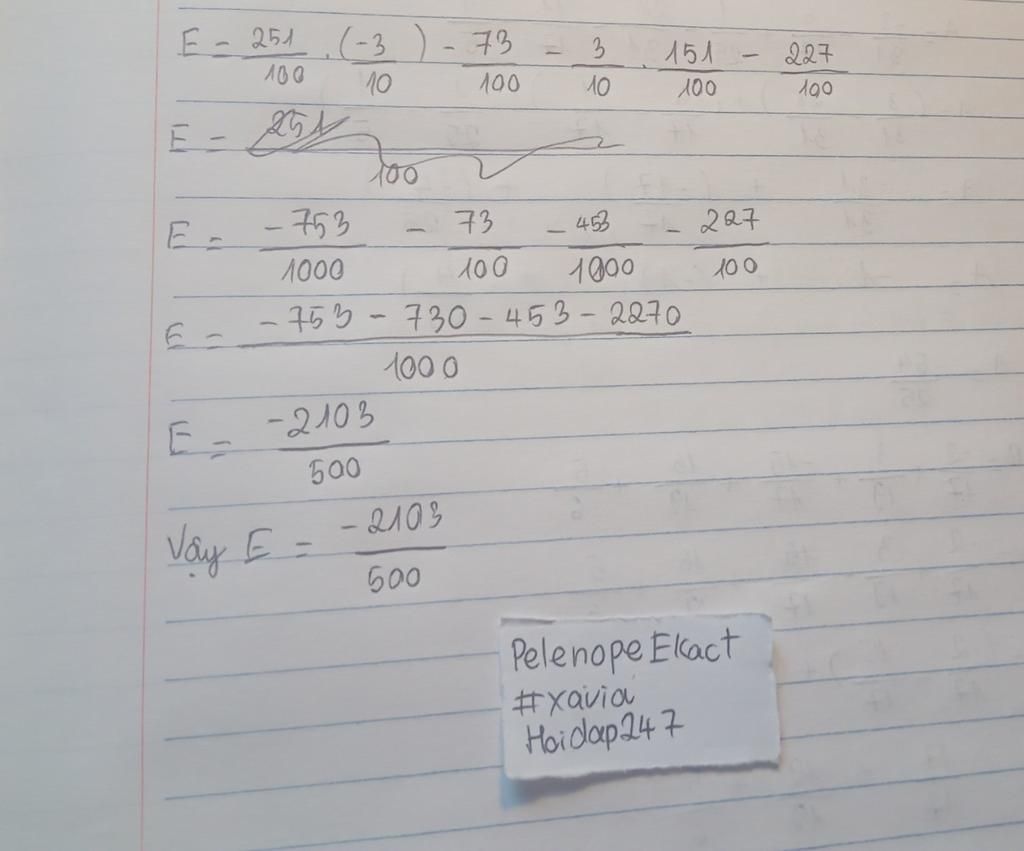 E = 251/100 . (-3/10) - 73/100 - 3/10 . 151/100 - 227/100
E = 251/100
E = -753/1000 - 73/100 - 453/1000 - 227/100
E = -753 - 730 - 453 - 2270/1000
E = -2103/500
Vậy E = -2103/500
PelenopeEkact
#xavia
Hoidap247